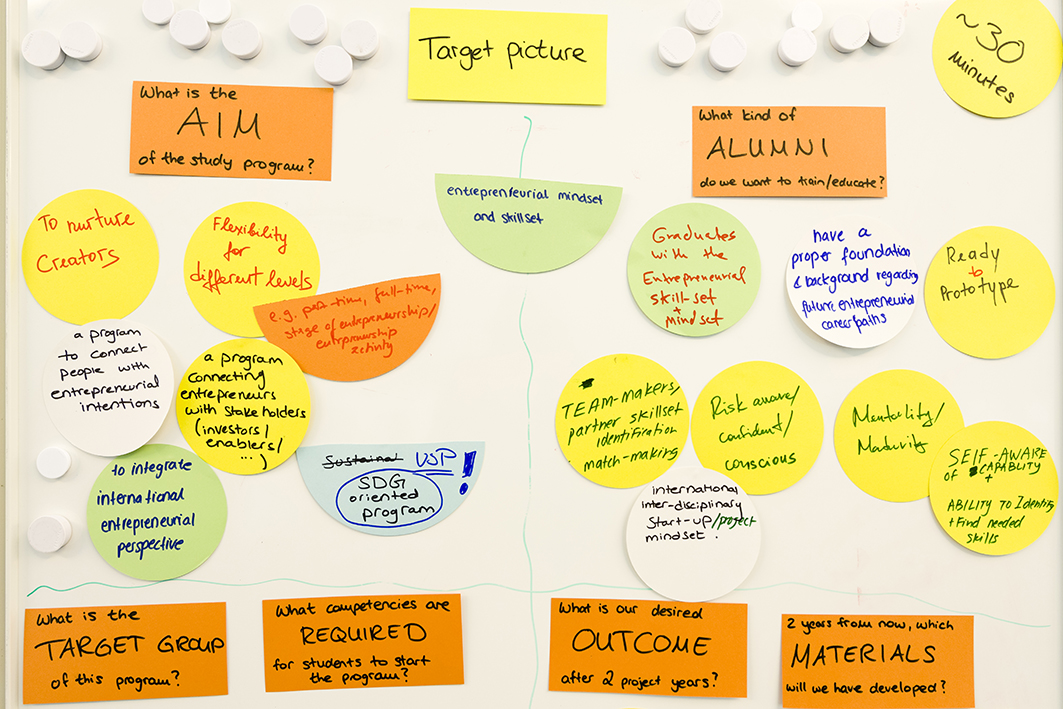 Target picture
~30
minutes
What is the
AIM
of the study program?
What kind of
ALUMNI
do we want to train/educate?
entrepreneurial mindset
and skillset
To nurture
Creators
Flexibility
for
different levels
e.g. part-time, full-time,
stage of entrepreneurship/
entrpreneurship
activity
a program
to connect
people with
entrepreneurial
intentions
a program
connecting
entrepreneurs
with stakeholders
(investors/
enablers/
...)
to integrate
international
entrepreneurial
perspective
Sustainal USP!
SDG
oriented
program
Graduates
with the
Entrepreneurial
skill-set
+
mindset
have a
proper foundation
& background regarding
future entrepreneurial
career paths
Ready
to
Prototype
TEAM-makers/
partner skillset
identification
match-making
Risk aware/
confident/
conscious
Mentality/
Maturity
SELF-AWARE
OF CAPABLITY
+
ABILITY TO Identify
+ Find needed
skills
international
inter-disciplinary
Start-up/project
mindset.
What is the
TARGET GROUP
of this program?
What competencies are
REQUIRED
for students to start
the program?
What is our desired
OUTCOME
after 2 project years?
2 years from now, which
MATERIALS
will we have developed?